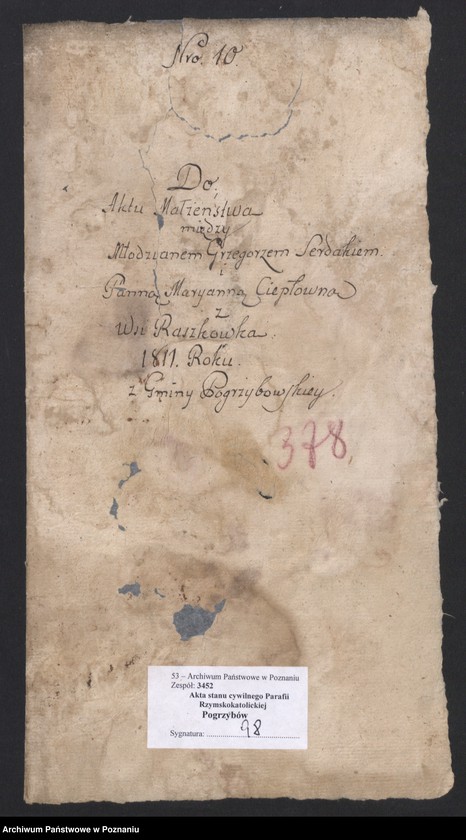 Nro. 10.
Do,
Aktu Małżeństwa
między
Młodzianem Grzegorzem Serdakiem.
i
Panną Maryanną Ciepłowną
z
Wsi Raszkowka.
1811. Roku.
z Gminy Pogrzybowskiey.
378.
53 – Archiwum Państwowe w Poznaniu
Zespół: 3452
Akta stanu cywilnego Parafii
Rzymskokatolickiej
Pogrzybów
Sygnatura: 98
Archiwum Państwowe w Poznaniu